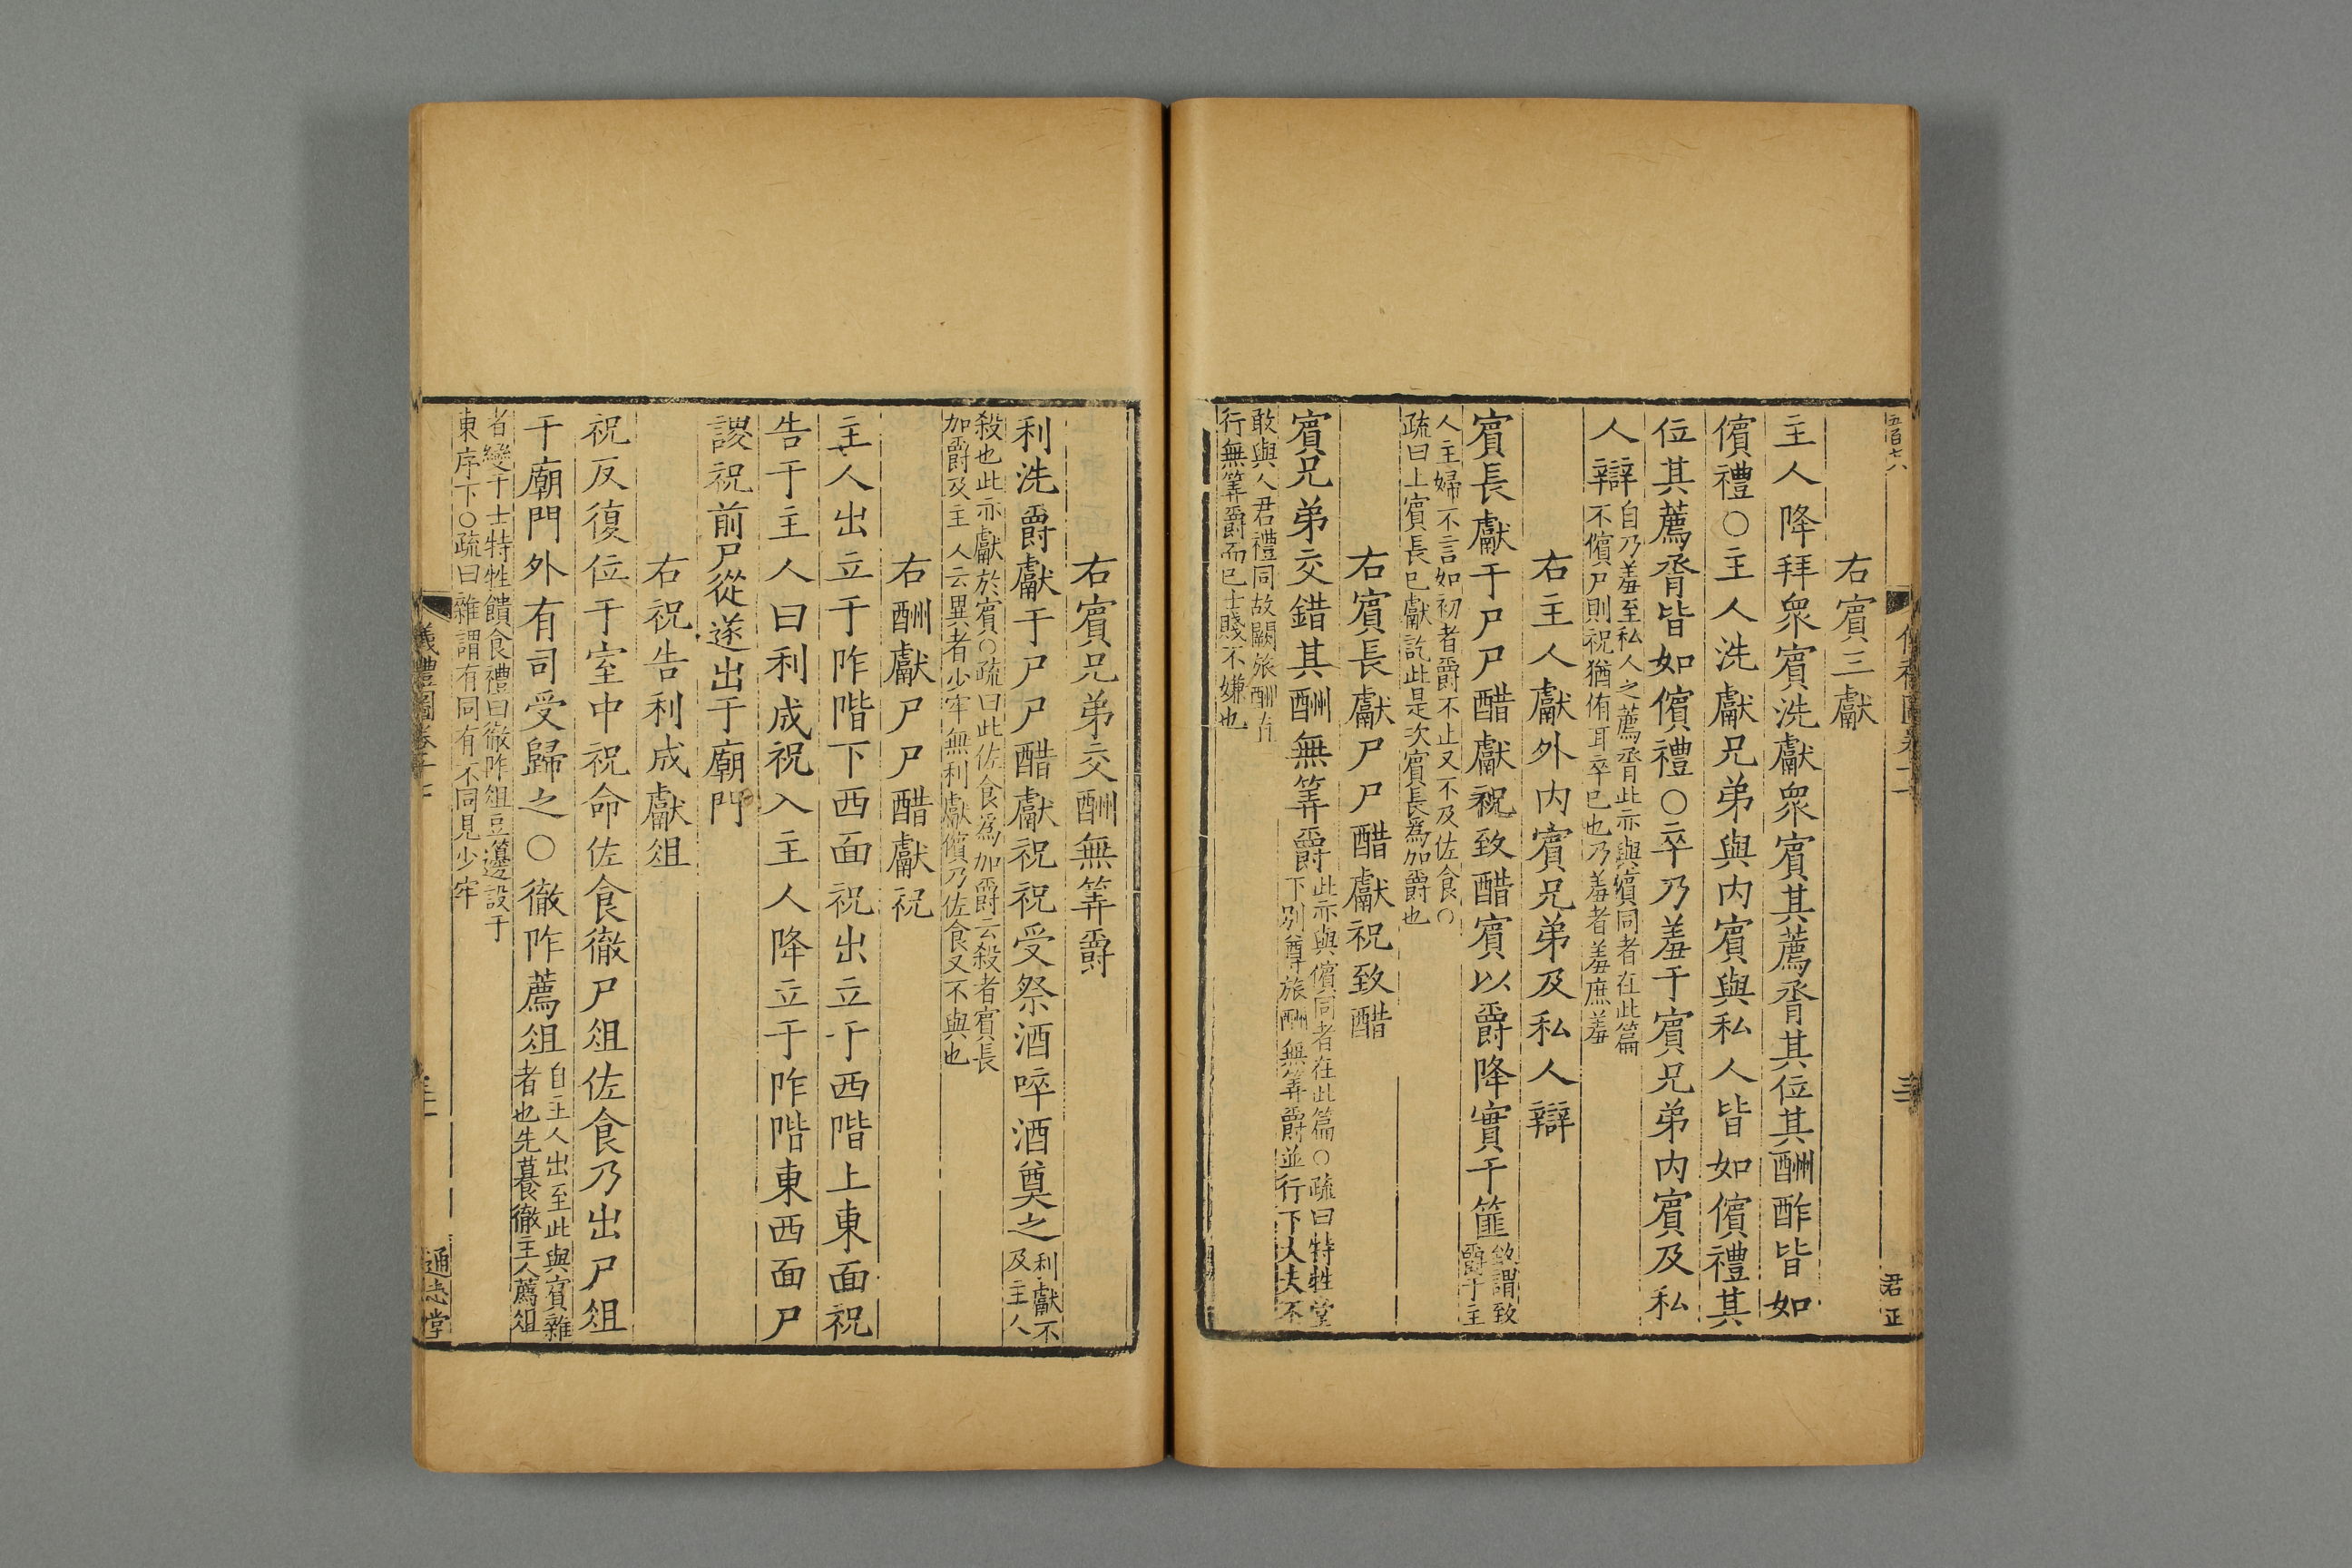 五百七八
君正
右賔三獻
主人降拜衆賔洗獻衆賔其薦脀其位其酬酢皆如
儐禮○主人洗獻兄弟與内賔與私人皆如儐禮其
位其薦脀皆如儐禮○卒乃羞于賔兄弟内賔及私
人辯
自乃羞至私人之薦脀此亦與儐同者在此篇
不儐尸則祝猶侑耳卒巳也乃羞者羞庶羞
右主人獻外内賔兄弟及私人辯
賔長獻于尸尸醋獻祝致醋賔以爵降實于篚
致謂致
爵于主
人主婦不言如初者爵不止又不及佐食○
疏曰上賔長巳獻訖此是次賔長爲加爵也
右賔長獻尸尸醋獻祝致醋
賔兄弟交錯其酬無筭爵
此亦與儐同者在此篇○疏曰特牲堂
下别尊旅酬無筭爵並行下大夫不
敢與人君禮同故闕旅酬直
行無筭爵而巳士賤不嫌也
右賔兄弟交酬無筭爵
利洗爵獻于尸尸醋獻祝祝受祭酒啐酒奠之
利獻不
及主人
殺也此亦獻於賔○疏曰此佐食爲加爵云殺者賔長
加爵及主人云異者少牢無利獻儐乃佐食又不與也
右酬獻尸尸醋獻祝
主人出立于阼階下西面祝出立于西階上東面祝
告于主人曰利成祝入主人降立于阼階東西面尸
謖祝前尸從遂出于廟門
右祝告利成獻俎
祝反復位于室中祝命佐食徹尸俎佐食乃出尸俎
于廟門外有司受歸之○徹阼薦俎
自主人出至此與賔雜
者也先䬸徹主人薦俎
者變于士特牲饋食禮曰徹阼俎豆籩設于
東序下○疏曰雜謂有同有不同見少牢
儀禮圖卷十七
通志堂